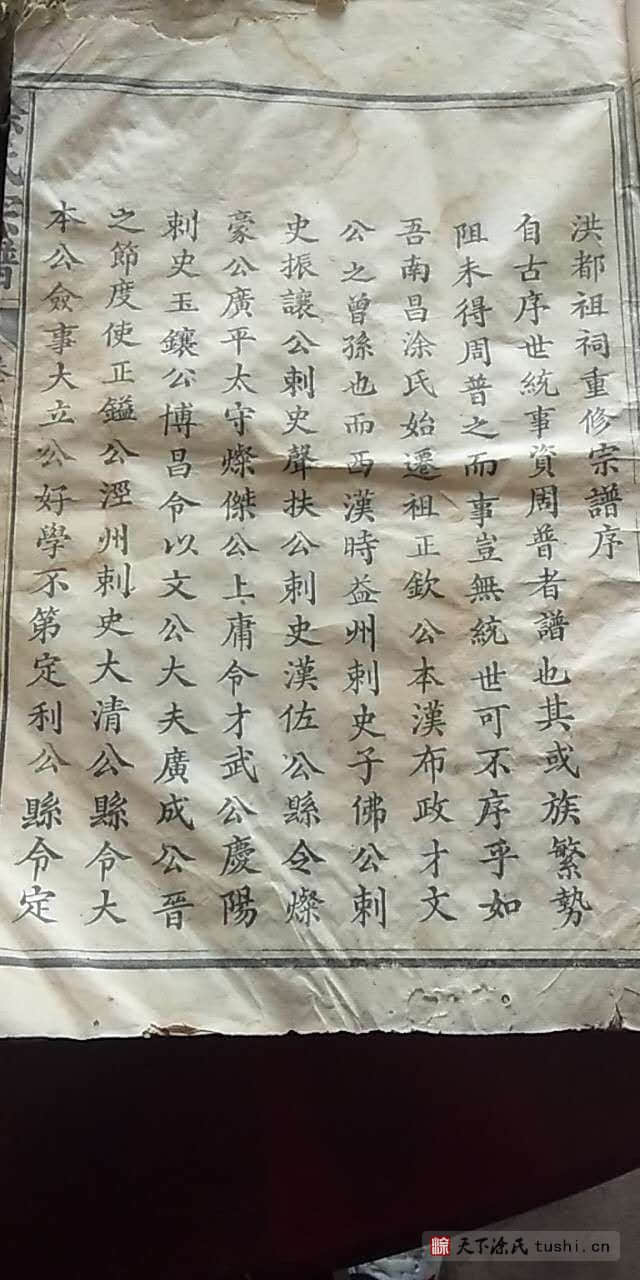 洪都祖祠重修宗譜序
自古序世統事資周普者譜也其或族繁勢
阻未得周普之而事豈無統世可不序乎如
吾南昌涂氏始遷祖正欽公本漢布政才文
公之曾孫也而西漢時益州刺史子佛公刺
史振讓公刺史聲扶公刺史漢佐公縣令燦
豪公廣平太守燦傑公上庸令才武公慶陽
刺史玉鑲公博昌令以文公大夫廣成公晉
之節度使正鎰公涇州刺史大清公縣令大
本公僉事大立公好學不第定利公縣令定
氏宗譜
天下涂氏 tushi.cn